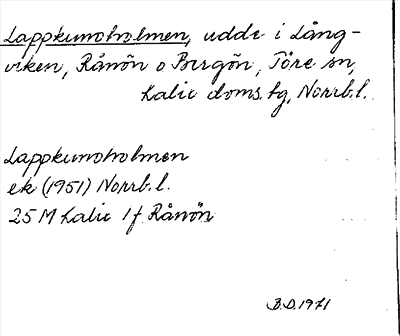 Lappkumoholmen, udde i Lång-
viken, Rånön o Bergön, Töre sn,
Kalix doms. tg, Norrb. l.
Lappkumoholmen
ek (1951) Norrb. l.
25 M Kalix 1 f. Rånön
B.D. 1971